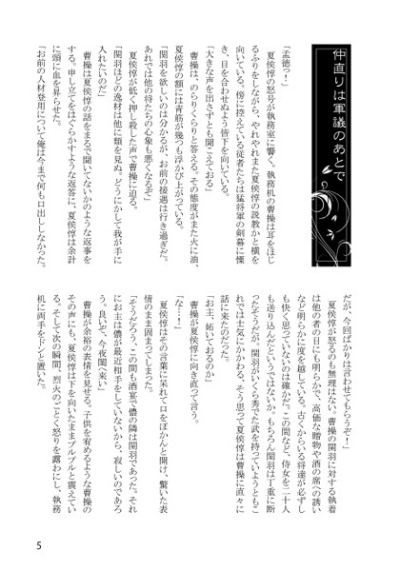 仲直りは軍議のあとで
「孟徳っ！」
　夏侯惇の怒号が執務室に響く。執務机の曹操は耳をほじ
るふりをしながら、やれやれまた夏侯惇の説教かと横を
向いている。傍に控えている従者たちは猛将軍の剣幕に慄
き、目を合わせぬよう皆下を向いている。
「大きな声を出さずとも聞こえておる」
　曹操は、のらりくらりと答える。その態度がまた火に油、
夏侯惇の額には青筋が幾つも浮かび上がっている。
「関羽を欲しいのは分かるが、お前の接遇は行き過ぎだ。
あれでは他の将たちの心象も悪くなるぞ」
　夏侯惇が低く押し殺した声で曹操に迫る。
「関羽ほどの逸材は他に類を見ぬ。どうにかして我が手に
入れたいのだ」
　曹操は夏侯惇の話をまるで聞いてないかのような返事を
する。申し立てをはぐらかすような返答に、夏侯惇は余計
に頭に血を昇らせた。
「お前の人材登用について俺は今まで何も口出ししなかった。
だが、今回ばかりは言わせてもらうぞ！」
　夏侯惇が怒るのも無理はない。曹操の関羽に対する執着
は他の者の目にも明らかで、高価な贈物や酒の席への誘い
など明らかに度を越している。古くからいる将達が必ずし
も快く思っていないのは確かだ。この間など、侍女を二十人
も送り込んだというではないか。もちろん関羽は丁重に断
ったそうだが、関羽がいくら秀でた武を持っていようともこ
れでは士気にかかわる。そう思って夏侯惇は曹操に直々に
話に来たのだった。
「お主、妬いておるのか」
　曹操が夏侯惇に向き直って言う。
「な…！」
　夏侯惇はその言葉に呆れて口をぽかんと開け、驚いた表
情のまま固まってしまった。
「そうだろう、この間も酒宴で儂の隣は関羽であった。それ
にお主は儂が最近相手をしていないから、寂しいのであろ
う。良いぞ、今夜閨へ来い」
　曹操が余裕の表情を見せる。子供を宥めるような曹操の
その声にも、夏侯惇は下を向いたままプルプルと震えてい
る。そして次の瞬間、烈火のごとく怒りを露わにし、執務
机に両手をドンと置いた。
5